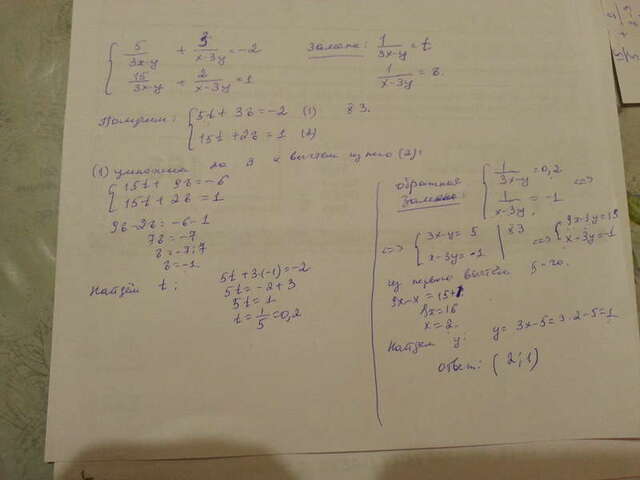 5/(3x-y) + 3/(x-3y) = -2
15/(3x-y) + 2/(x-3y) = 1
Замена: 1/(3x-y) = t
1/(x-3y) = z.
Получим: 5t + 3z = -2 (1) | x3.
15t + 2z = 1 (2)
(1) умножаем на 3 и вычтем из него (2):
15t + 9z = -6
15t + 2z = 1
9z - 2z = -6 - 1
7z = -7
z = -7:7
z = -1.
Найдём t:
5t + 3·(-1) = -2
5t = -2 + 3
5t = 1
t = 1/5 = 0,2
обратная замена:
1/(3x-y) = 0,2
1/(x-3y) = -1 <=>
<=> 3x-y = 5 | x3
x-3y = -1
<=> 9x-3y = 15
x-3y = -1
из первого вычтем
9x-x = 15+1
8x = 16
x = 2.
Найдём y: y = 3x-5 = 3·2-5 = 1
Ответ: (2; 1)